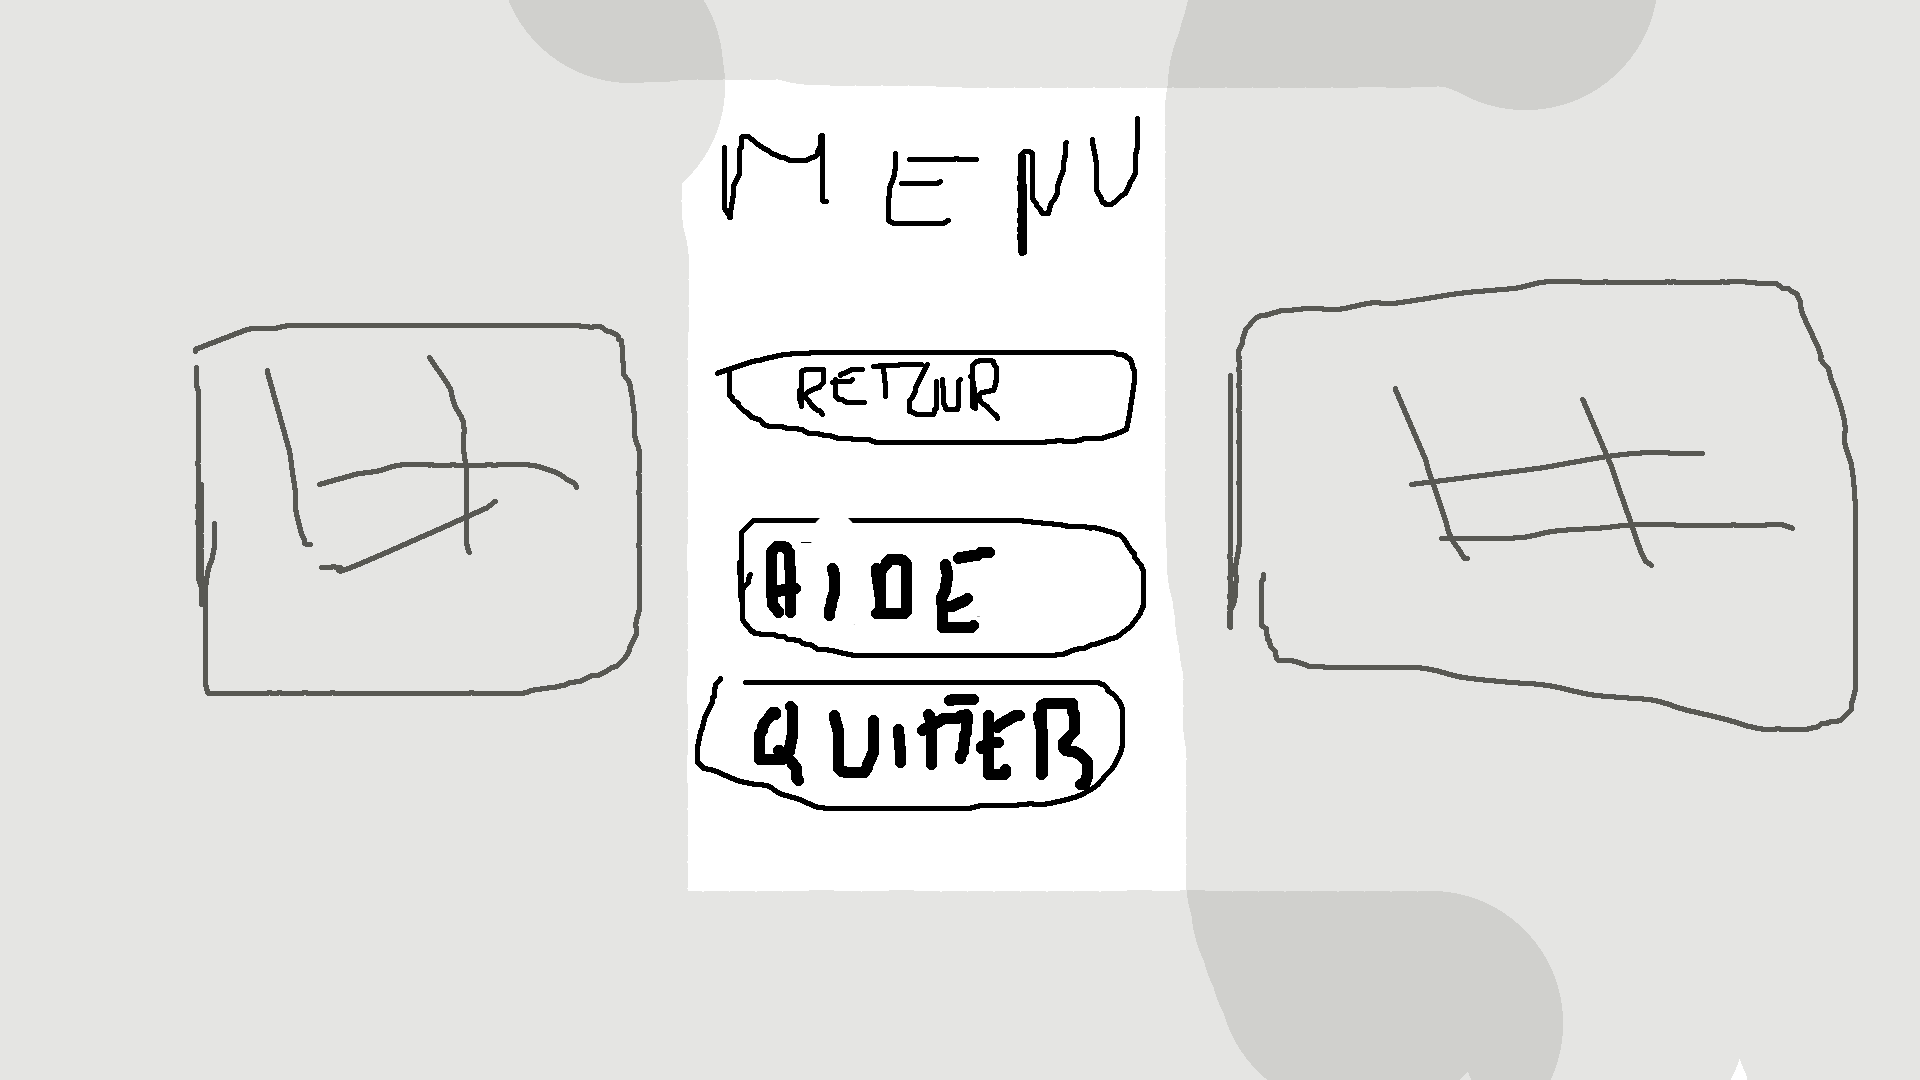 MENU
RETOUR
AIDE
QUITTER